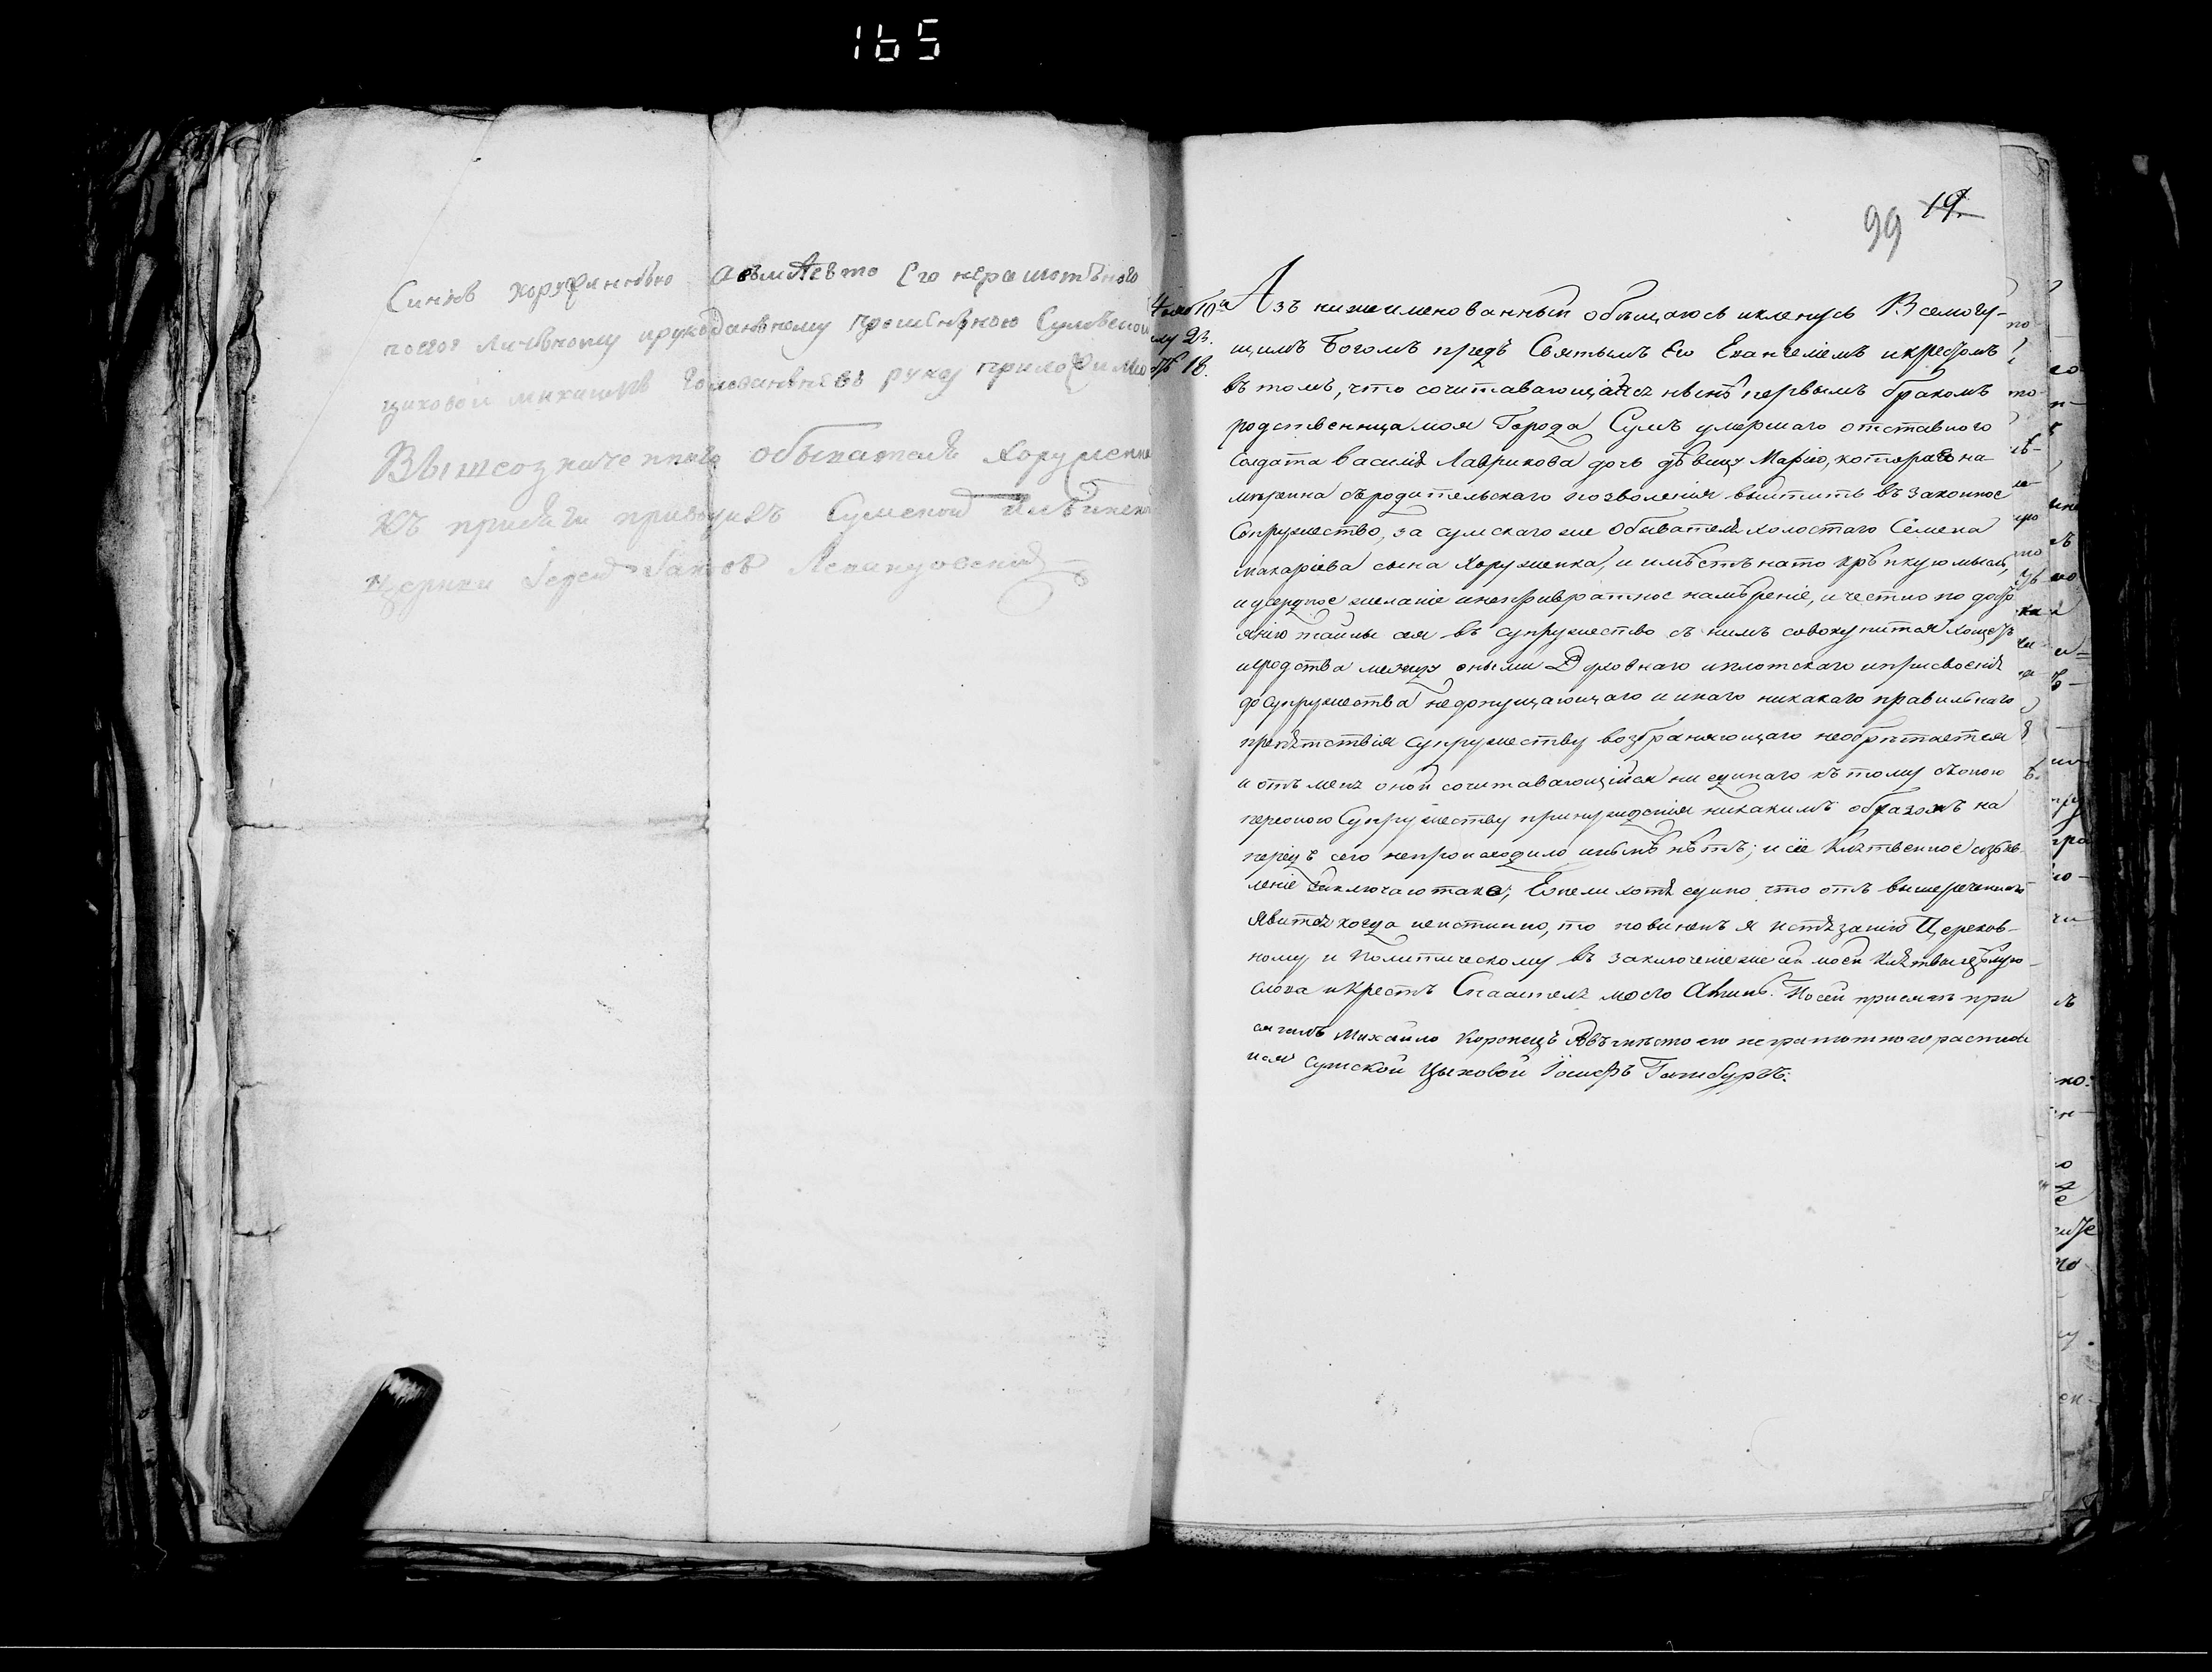 165
Синъв хоружинъко авъмѣсто Его неграмотъного
поего личъному ирукоданъному прошенъною Сумъской
циховой михаилъ руку приложилъ
Вышеозначенного обывателя Хоруженка
къ присяги приводилъ Сумской Илѣинской
Церкви Іерей Іаковъ
4
му 23.
18.
99 19.
Азъ нижеименованный обѣщаюсь икленусь Всемогу-
щимъ Богомъ предъ Святымъ Его Евангеліемъ икрестомъ
въ томъ, что сочитавающаяся нынѣ первымъ бракомъ
родственница моя Города Сумъ умершаго отставного
Солдата василія Лаврикова дочь дѣвица Марія, которая на
мѣрена съродительскаго позволенія вытить въ законное
Супружество, за сумскаго же Обывателя холостаго Семена
макаріева сына Хоруженка, и имѣетъ нато крѣпкую мысль,
иусердное желаніе инепривратное намѣреніе, и честно по
янію тайны сея въ супружество съ нимъ совокупится хощетъ
иродства между оными Духовнаго иплотскаго иприсвоенія
до супружества недопущающаго и инаго никакаго правильнаго
препятствія супружеству возбраняющаго необрѣтается
и отъ меня оной сочитавающійся ни единаго къ тому съоною
персоною Супружеству принужденія никакимъ образомъ на
передъ сего непроисходило инынѣ нѣтъ; и сіе Клятвенное изъяв-
леніе заключаю тако; Ежели хотя едино что отъ вышереченныхъ
явится когда неистинно, то повиненъ я истязанію Церков-
ному и Политическому въ заключеніе же сей моей Клятвы цѣлую
слова икрестъ Спасителя моего Аминь. Посей присягѣ при
сягалъ Михайло Коропецъ Авъмѣсто его неграмотного росписа
лся сумской Цыховой Іосифъ Гамбурхъ: